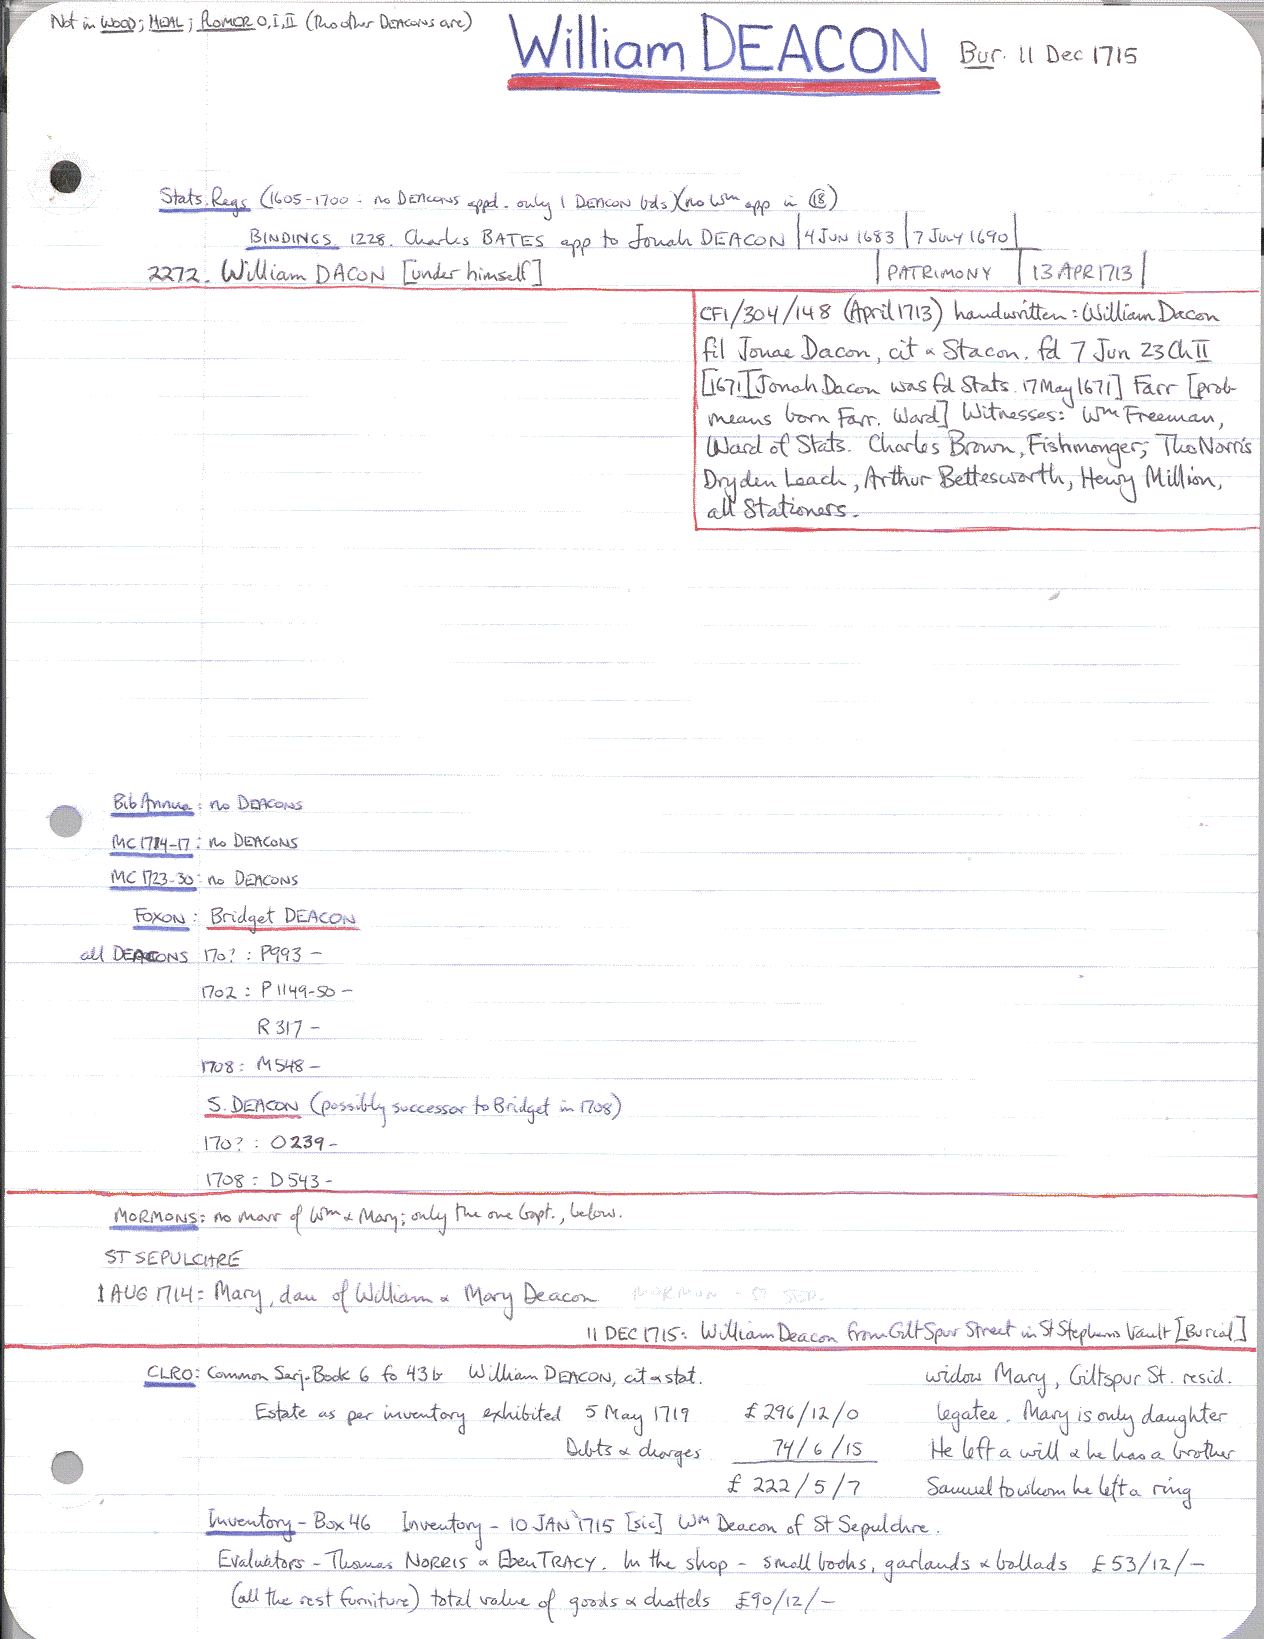 Not in WOOD; HEAL; PLOMER O, I, II (Tho other DEACONS are)
William DEACON Bur. 11 Dec 1715
Stats. Regs (1605-1700 : no DEACONS appd. only 1 DEACON bds)(no Wm app in 18)
BINDINGS 1228. Charles BATES app to Jonah DEACON | 4 JUN 1683 | 7 JULY 1690 |
2272. William DACON [under himself] | PATRIMONY | 13 APR 1713 |
CF1/304/148 (April 1713) handwritten: William Dacon
fil Jonae Dacon, cit & Stacon. fd 7 Jun 23 Ch II
[1671][Jonah Dacon was fd Stats. 17 May 1671] Farr [prob
means born Farr. Ward] Witnesses: Wm Freeman,
Ward of Stats. Charles Brown, Fishmonger; Tho Norris
Dryden Leach, Arthur Bettesworth, Henry Million,
all Stationers.
Bib Annua: no DEACONS
MC 1714-17: no DEACONS
MC 1723-30: no DEACONS
FOXON: Bridget DEACON
all DEACONS 170? : P993 -
1702 : P1149-50 -
R317 -
1708: M548 -
S. DEACON (possibly successor to Bridget in 1708)
170? : O239 -
1708 : D543 -
MORMONS: no marr of Wm & Mary; only the one bapt., below.
ST SEPULCHRE
1 AUG 1714: Mary, dau of William & Mary Deacon MORMON - ST SEP.
11 DEC 1715: William Deacon from Gilt Spur Street in St Stephens Vault [Burial]
CLRO: Common Serj. Book 6 fo 43b William DEACON, cit & stat. widow Mary, Giltspur St. resid.
Estate as per inventory exhibited 5 May 1719 £296/12/0 legatee. Mary is only daughter
Debts & charges 74/6/15 He left a will & he has a brother
£ 222/5/7 Samuel to whom he left a ring
Inventory - Box 46 Inventory - 10 JAN 1715 [sic] Wm Deacon of St Sepulchre.
Evaluators - Thomas NORRIS & Eben TRACY. In the shop - small books, garlands & ballads £53/12/-
(all the rest furniture) total value of goods & chattels £90/12/-